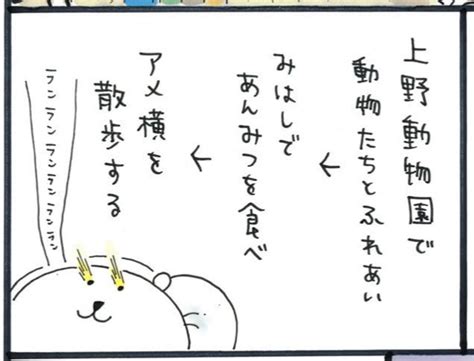 上野動物園で
動物たちとふれあい
↓
みはしで
あんみつを食べ
↓
アメ横を
散歩する
ランランランランランラン